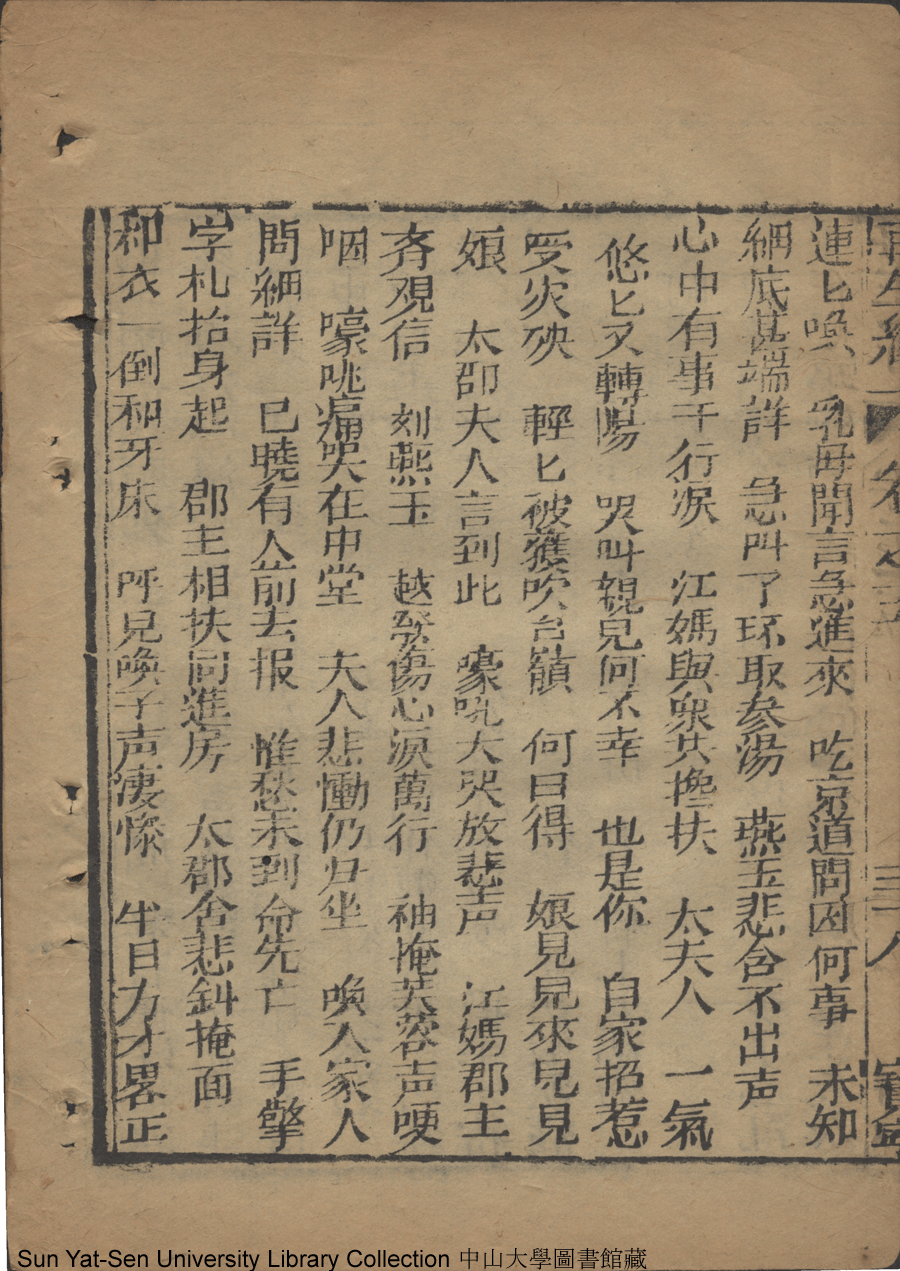 再生緣 卷之五 三十八
連匕喚 乳母聞言急進來 吃京道問因何事 未知
細底甚端詳 急叫了环取参湯 燕玉悲含不出声
心中有事千行淚 江媽與衆共攙扶 太夫人 一氣
悠匕又轉陽 哭叫親兒何不幸 也是你 自家招惹
受灾殃 輕匕被獲吹台嶺 何日得 娘見兒來兒見
娘 太郡夫人言到此 嚎吼大哭放悲声 江媽郡主
斉观信 刘燕玉 越發傷心淚萬行 袖掩芙蓉声哽
咽 嚎咷痛哭在中堂 夫人悲慟仍归坐 喚入家人
問細詳 已曉有人前去报 惟愁未到命先亡 手擎
字札抬身起 郡主相扶同進房 太郡含悲斜掩面
和衣一倒和牙床 呼兒喚子声凄慘 半日方才畧正
Sun Yat-Sen University Library Collection 中山大學圖書館藏